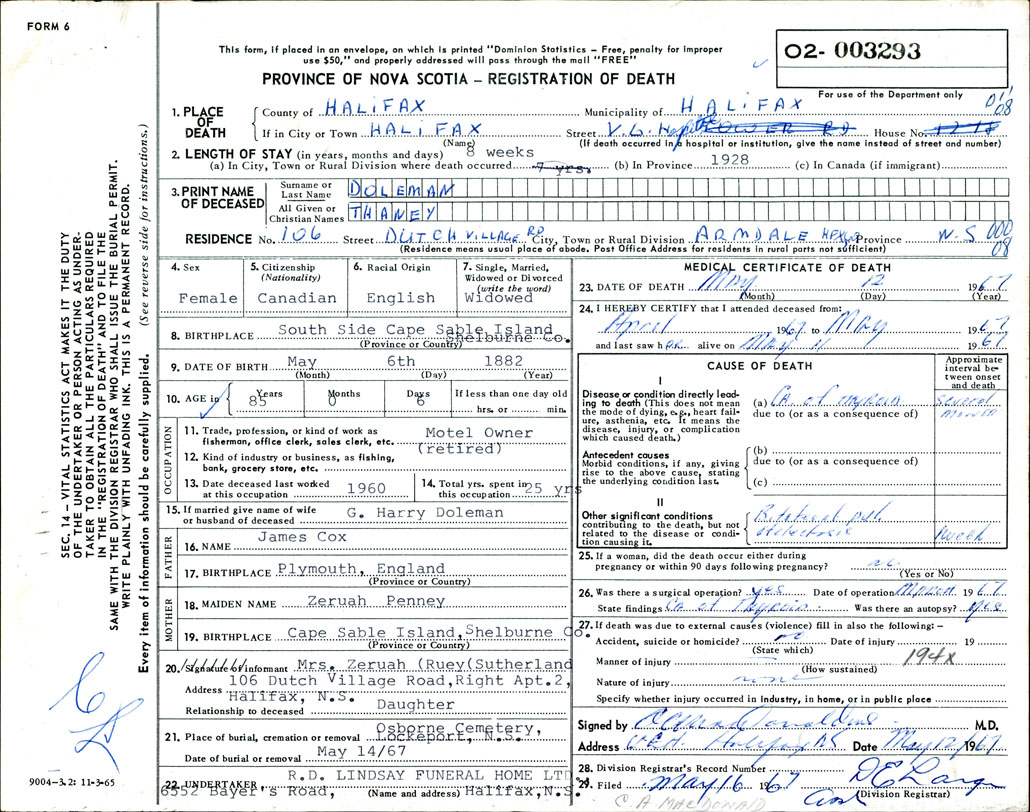 FORM 6
This form, if placed in an envelope, on which is printed "Dominion Statistics – Free, penalty for improper
use $50," and properly addressed will pass through the mail "FREE"
PROVINCE OF NOVA SCOTIA – REGISTRATION OF DEATH
02- 003293
For use of the Department only
1. PLACE OF DEATH
County of HALIFAX Municipality of HALIFAX 08
If in City or Town HALIFAX Street V.G. House No.
(Name) (If death occurred in a hospital or institution, give the name instead of street and number)
2. LENGTH OF STAY (in years, months and days) 8 weeks
(a) In City, Town or Rural Division where death occurred 7 yrs. (b) In Province 1928 (c) In Canada (if immigrant)
3. PRINT NAME OF DECEASED
Surname or Last Name DOLEMAN
All Given or Christian Names THANEY
RESIDENCE No. 106 Street DUTCH VILLAGE RD City, Town or Rural Division ARMDALE Province N.S 000 08
(Residence means usual place of abode. Post Office Address for residents in rural parts not sufficient)
4. Sex Female
5. Citizenship (Nationality) Canadian
6. Racial Origin English
7. Single, Married, Widowed or Divorced (write the word) Widowed
8. BIRTHPLACE South Side Cape Sable Island Shelburne Co.
(Province or Country)
9. DATE OF BIRTH May 6th 1882
(Month) (Day) (Year)
10. AGE in Years 85 Months 0 Days 6 If less than one day old hrs. or min.
OCCUPATION
11. Trade, profession, or kind of work as fisherman, office clerk, sales clerk, etc. Motel Owner (retired)
12. Kind of industry or business, as fishing, bank, grocery store, etc.
13. Date deceased last worked at this occupation 1960
14. Total yrs. spent in this occupation 25 yrs
15. If married give name of wife or husband of deceased G. Harry Doleman
FATHER
16. NAME James Cox
17. BIRTHPLACE Plymouth, England
(Province or Country)
MOTHER
18. MAIDEN NAME Zeruah Penney
19. BIRTHPLACE Cape Sable Island, Shelburne Co.
(Province or Country)
20. Signature of informant Mrs. Zeruah (Ruey(Sutherland
Address 106 Dutch Village Road, Right Apt.2,
Halifax, N.S.
Relationship to deceased Daughter
21. Place of burial, cremation or removal Osborne Cemetery, Lockeport, N.S.
Date of burial or removal May 14/67
22. UNDERTAKER R.D. LINDSAY FUNERAL HOME LTD.
6552 Bayer's Road, (Name and address) Halifax, N.S.
MEDICAL CERTIFICATE OF DEATH
23. DATE OF DEATH May 12 1967
(Month) (Day) (Year)
24. I HEREBY CERTIFY that I attended deceased from:
April 1967 to May 1967
and last saw her alive on May 11 1967
CAUSE OF DEATH
Approximate interval between onset and death
I
Disease or condition directly leading to death (This does not mean the mode of dying, e.g., heart failure, asthenia, etc. It means the disease, injury, or complication which caused death.)
(a) Ca of thyroid several month
due to (or as a consequence of)
Antecedent causes
Morbid conditions, if any, giving rise to the above cause, stating the underlying condition last.
(b)
due to (or as a consequence of)
(c)
II
Other significant conditions contributing to the death, but not related to the disease or condition causing it.
Bilateral atelectasis week
25. If a woman, did the death occur either during pregnancy or within 90 days following pregnancy? no
(Yes or No)
26. Was there a surgical operation? yes Date of operation March 1967
State findings Ca of Thyroid Was there an autopsy? yes
27. If death was due to external causes (violence) fill in also the following:–
Accident, suicide or homicide? no Date of injury 19
(State which)
Manner of injury 194x
(How sustained)
Nature of injury none
Specify whether injury occurred in industry, in home, or in public place
Signed by M.D.
Address V.G.H. Halifax NS Date May 12/1967
28. Division Registrar's Record Number
29. Filed May 16 1967
(Division Registrar)
C. A MACDONALD
SEC. 14 – VITAL STATISTICS ACT MAKES IT THE DUTY
OF THE UNDERTAKER OR PERSON ACTING AS UNDER-
TAKER TO OBTAIN ALL THE PARTICULARS REQUIRED
IN THE "REGISTRATION OF DEATH" AND TO FILE THE
SAME WITH THE DIVISION REGISTRAR WHO SHALL ISSUE THE BURIAL PERMIT.
WRITE PLAINLY WITH UNFADING INK. THIS IS A PERMANENT RECORD.
Every item of information should be carefully supplied. (See reverse side for instructions.)
9004–3.2: 11-3-65